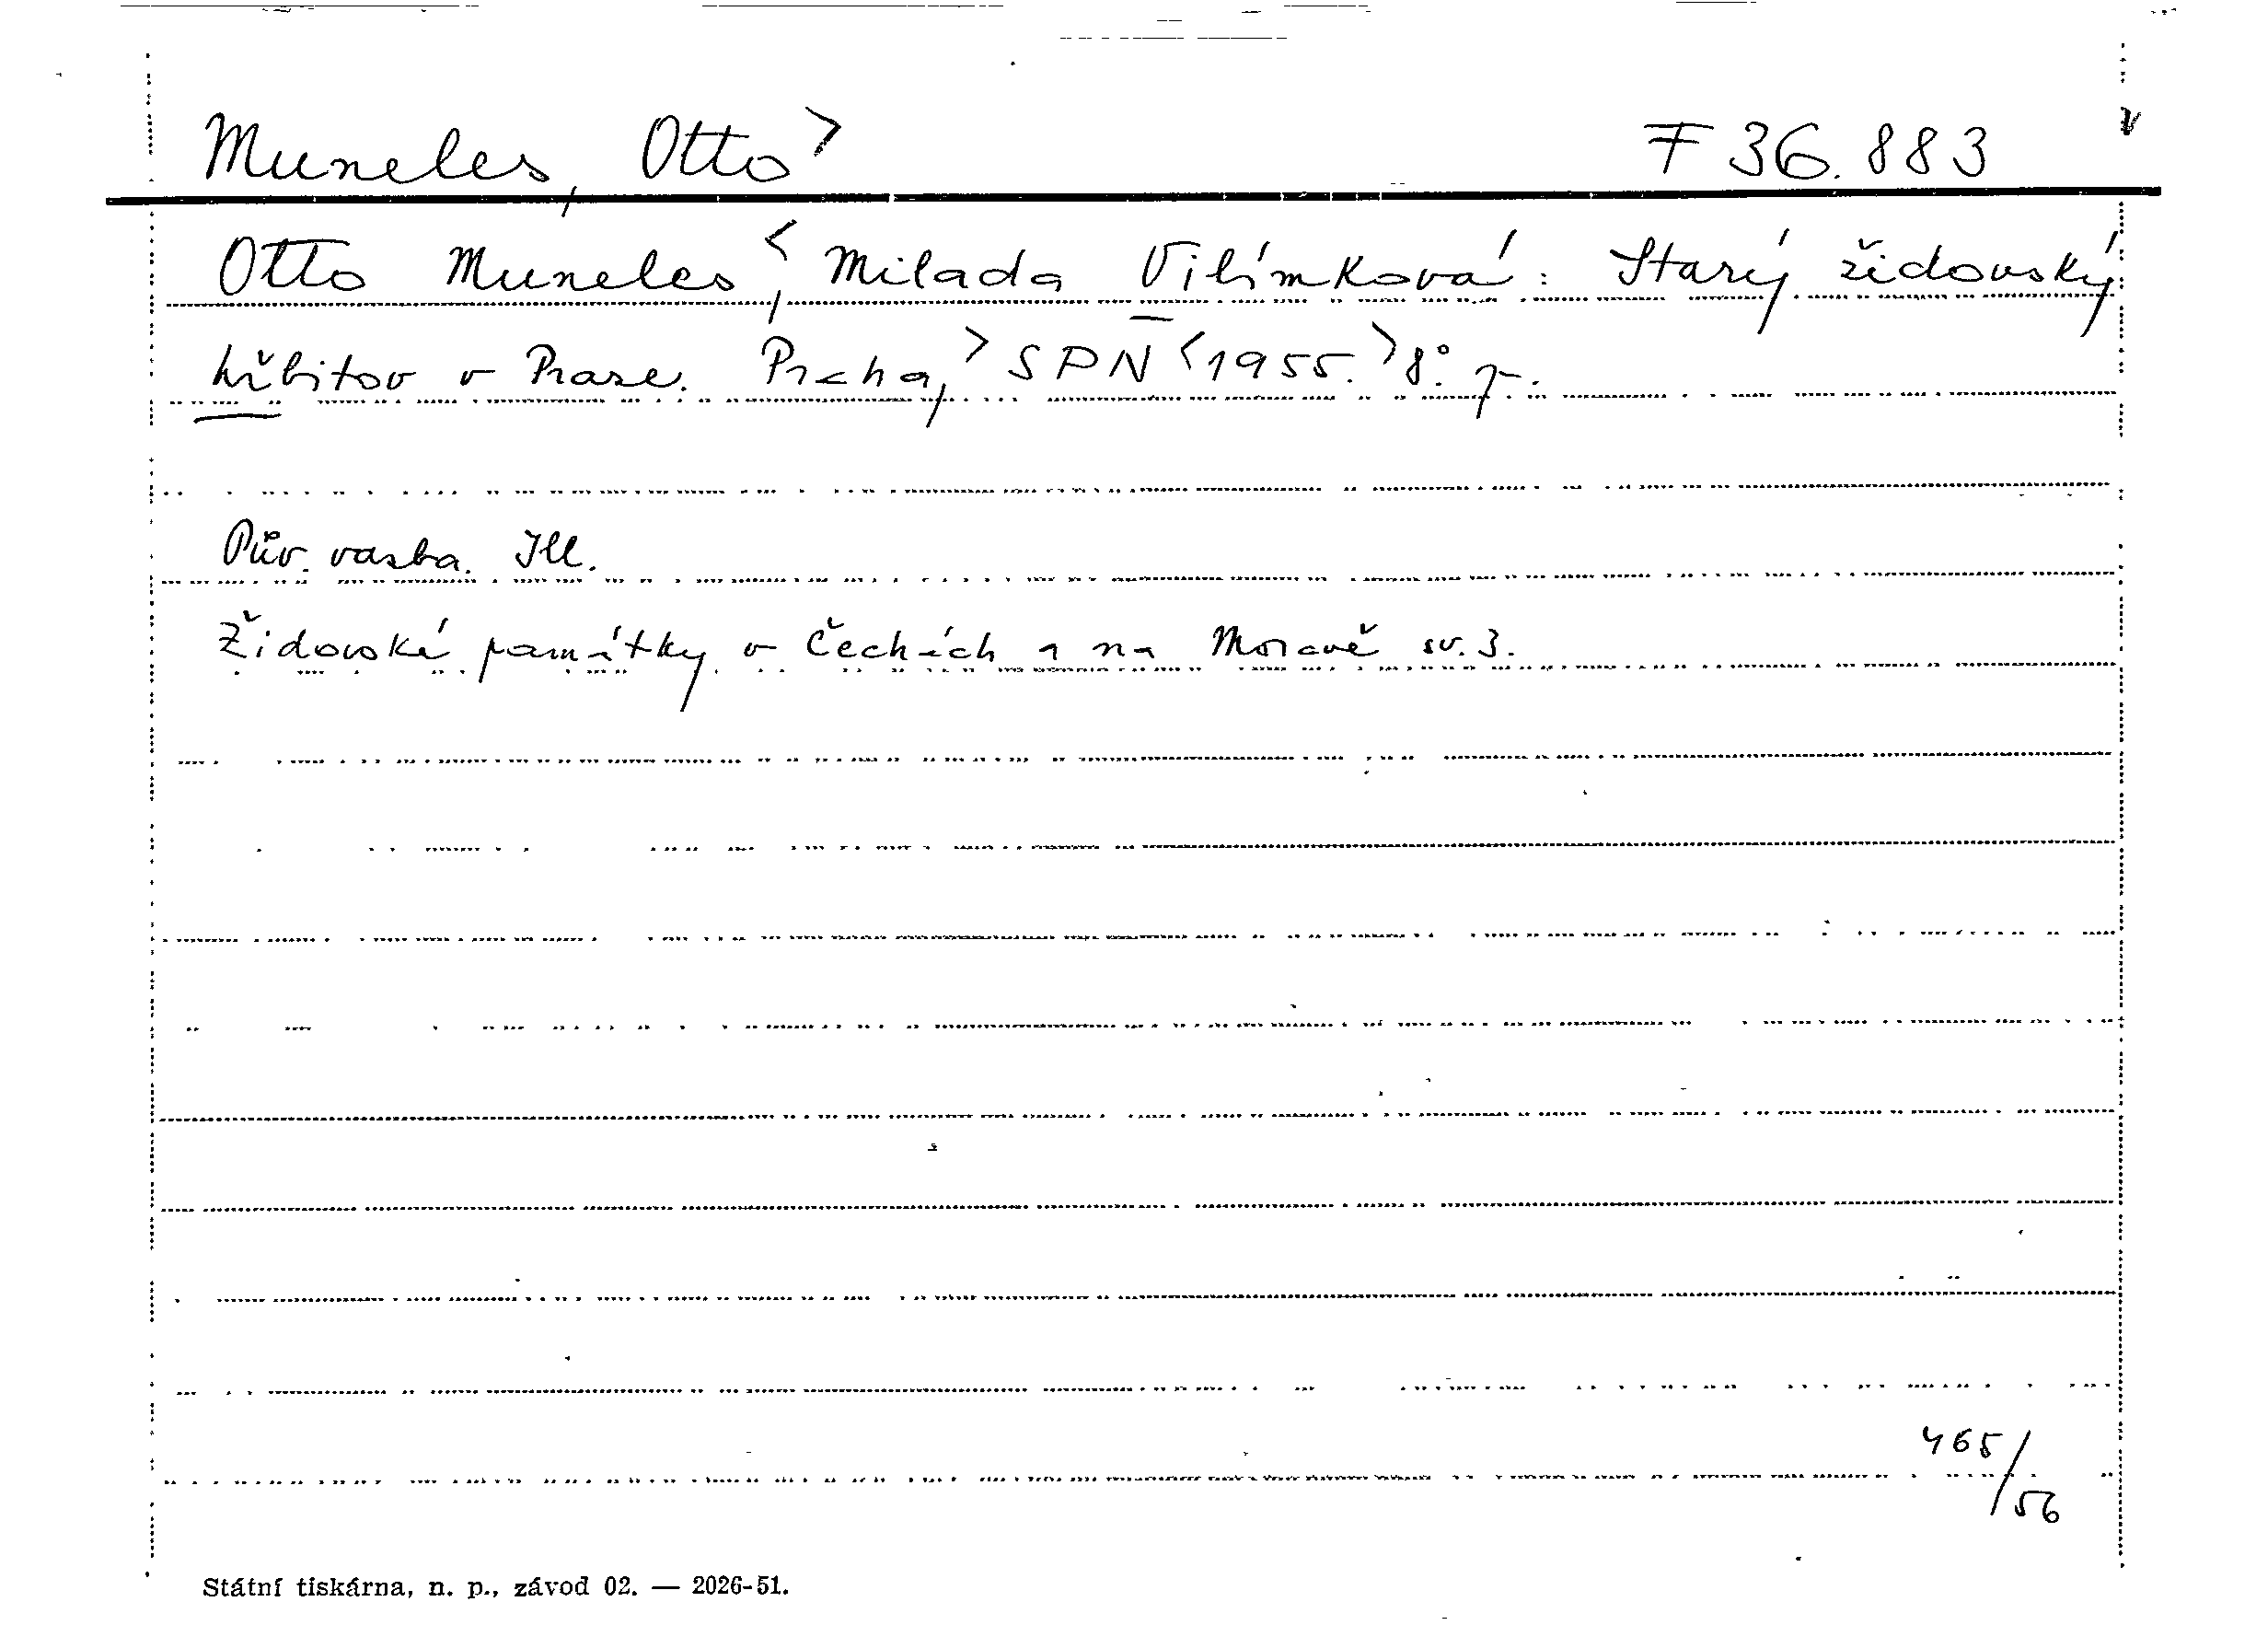 Muneles, Otto> F 36.883 v
Otto Muneles<, Milada Vilímková: Starý židovský
hřbitov v Praze. Praha,> SPN <1955.> 8°. p.
Pův. vazba. Ill.
Židovské památky v Čechách a na Moravě sv. 3.
465/56
Státní tiskárna, n. p., závod 02. — 2026-51.